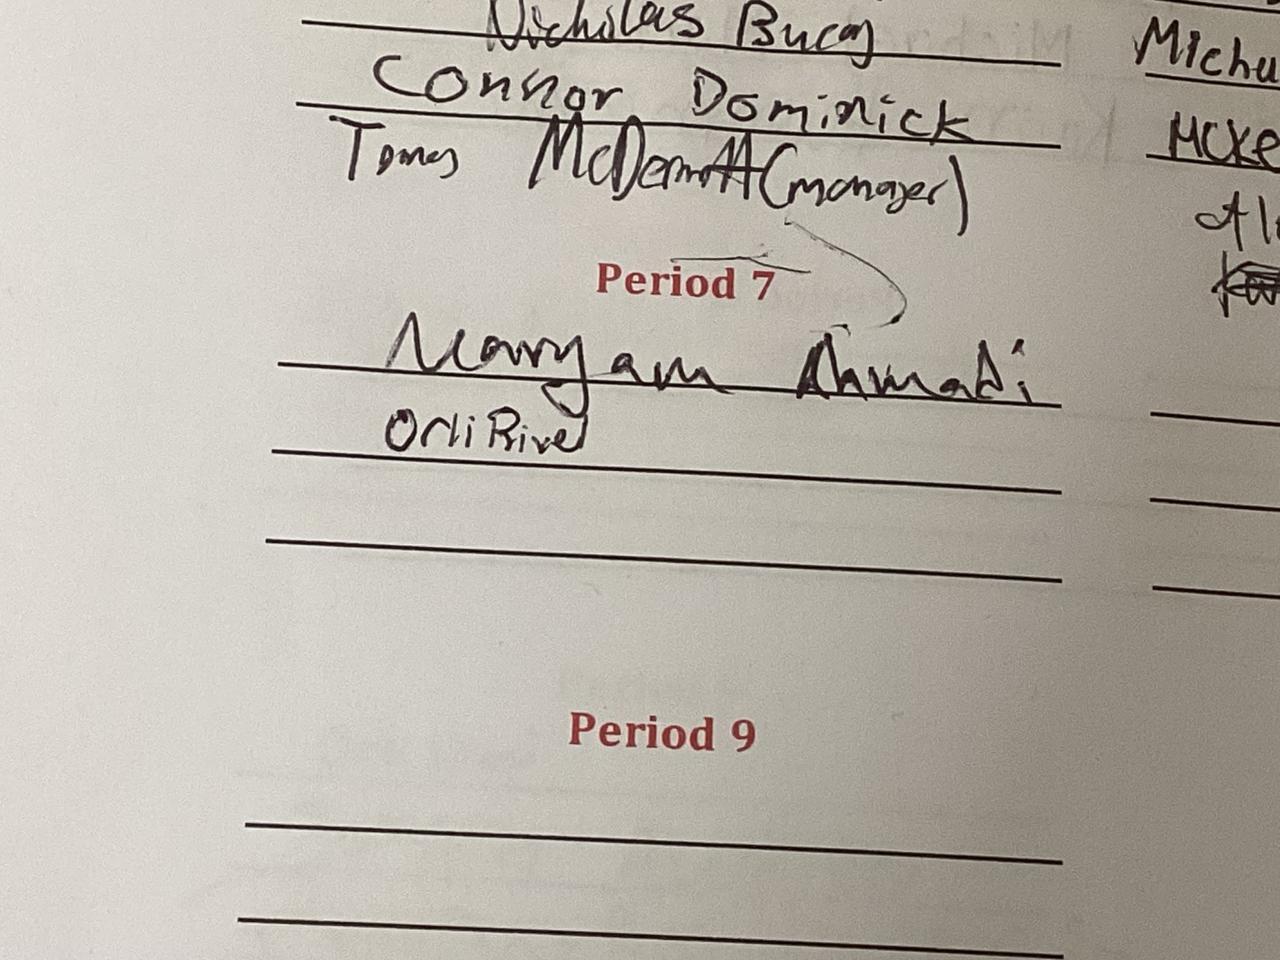 Nicholas Bucaj
Connor Dominick
Tomas McDermott (manager)
Period 7
Maryam Ahmadi
Orli River
Period 9